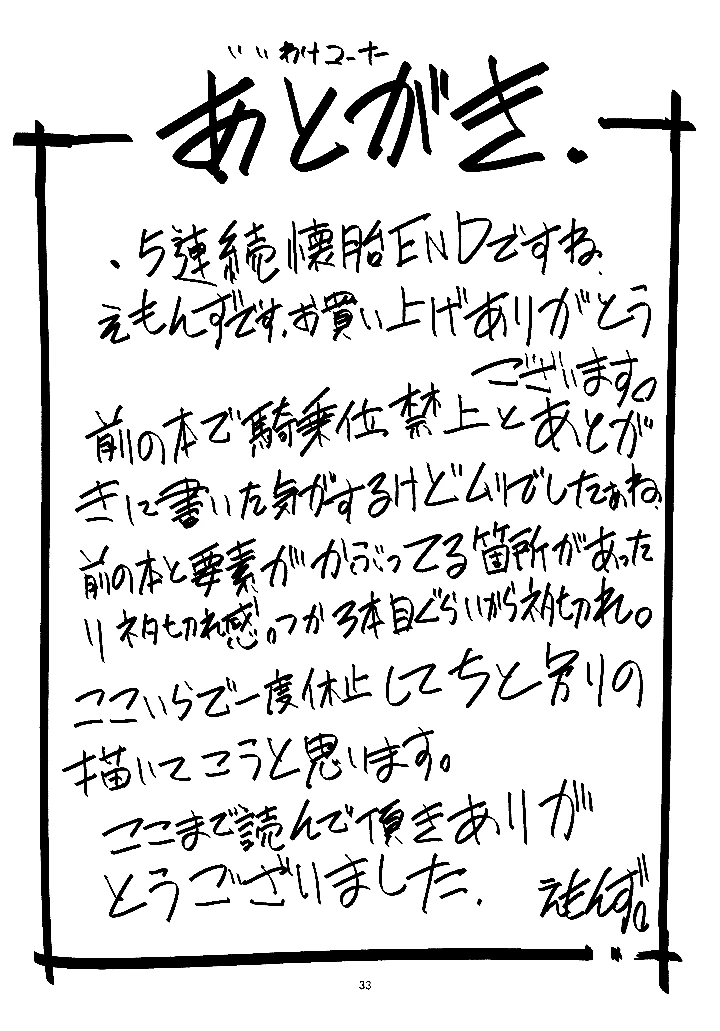 いいわけコーナー
あとがき.
・5連続懐胎ENDですね、
えもんずです、お買い上げありがとう
ございます。
前の本で騎乗位禁止とあとが
きに書いた気がするけどムリでしたぁね、
前の本と要素がかぶってる箇所があった
りネタ切れ感。つか3本目ぐらいからネタ切れ。
ここいらで一度休止してちと別の
描いてこうと思います。
ここまで読んで頂きありが
とうございました.
えもんず。
33